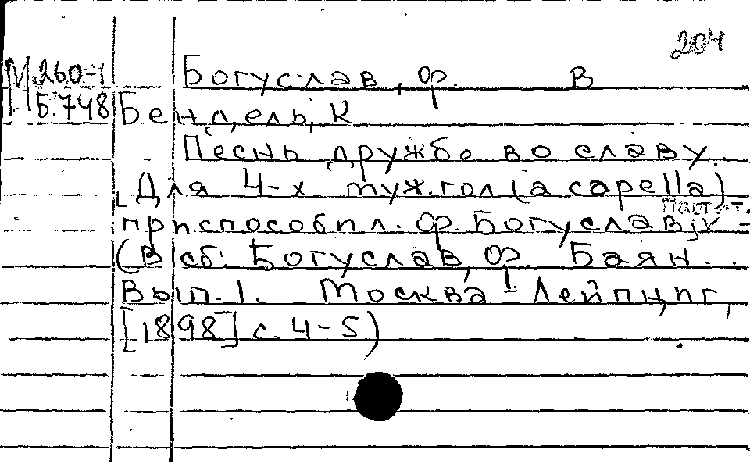 204
М 260-1 Богуслав, Ф. В
Б.748 Бендель, К
Песнь дружбе во славу.
Для 4-х муж.гол (a capella)
приспособил. Ф. Богуслав,
(В сб: Богуслав, Ф. Баян.
Вып.1. Москва - Лейпциг,
[1898] с. 4-5)